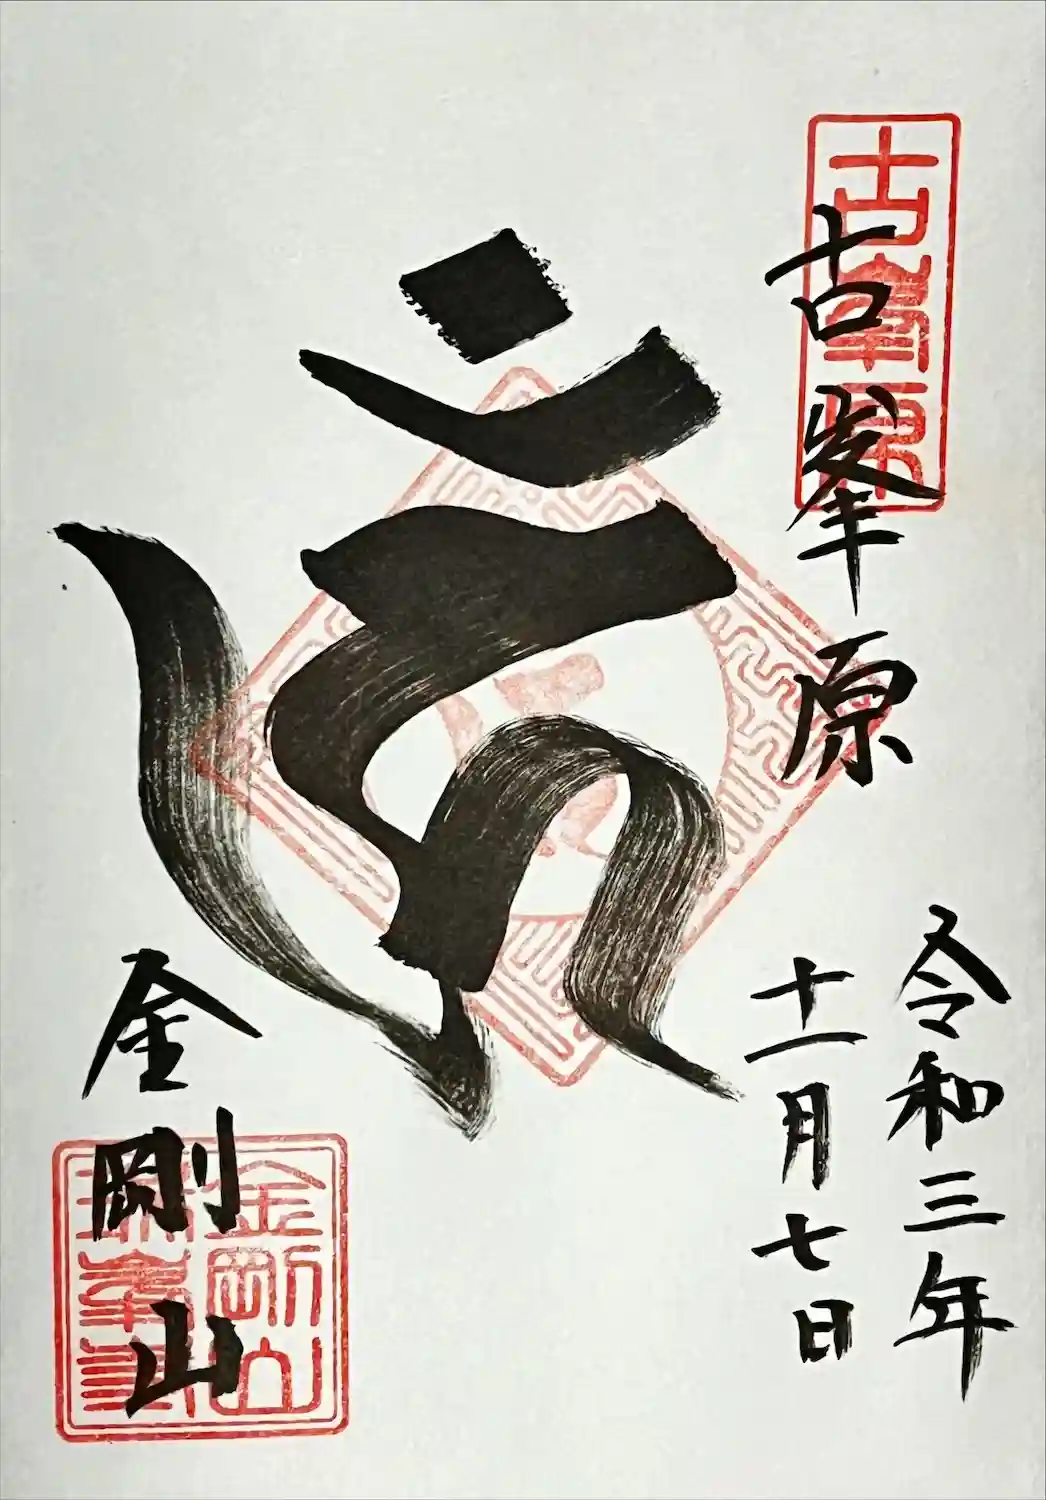 古峯原
古峯原
令和三年
十一月七日
金剛山
金剛山
瑞峯寺